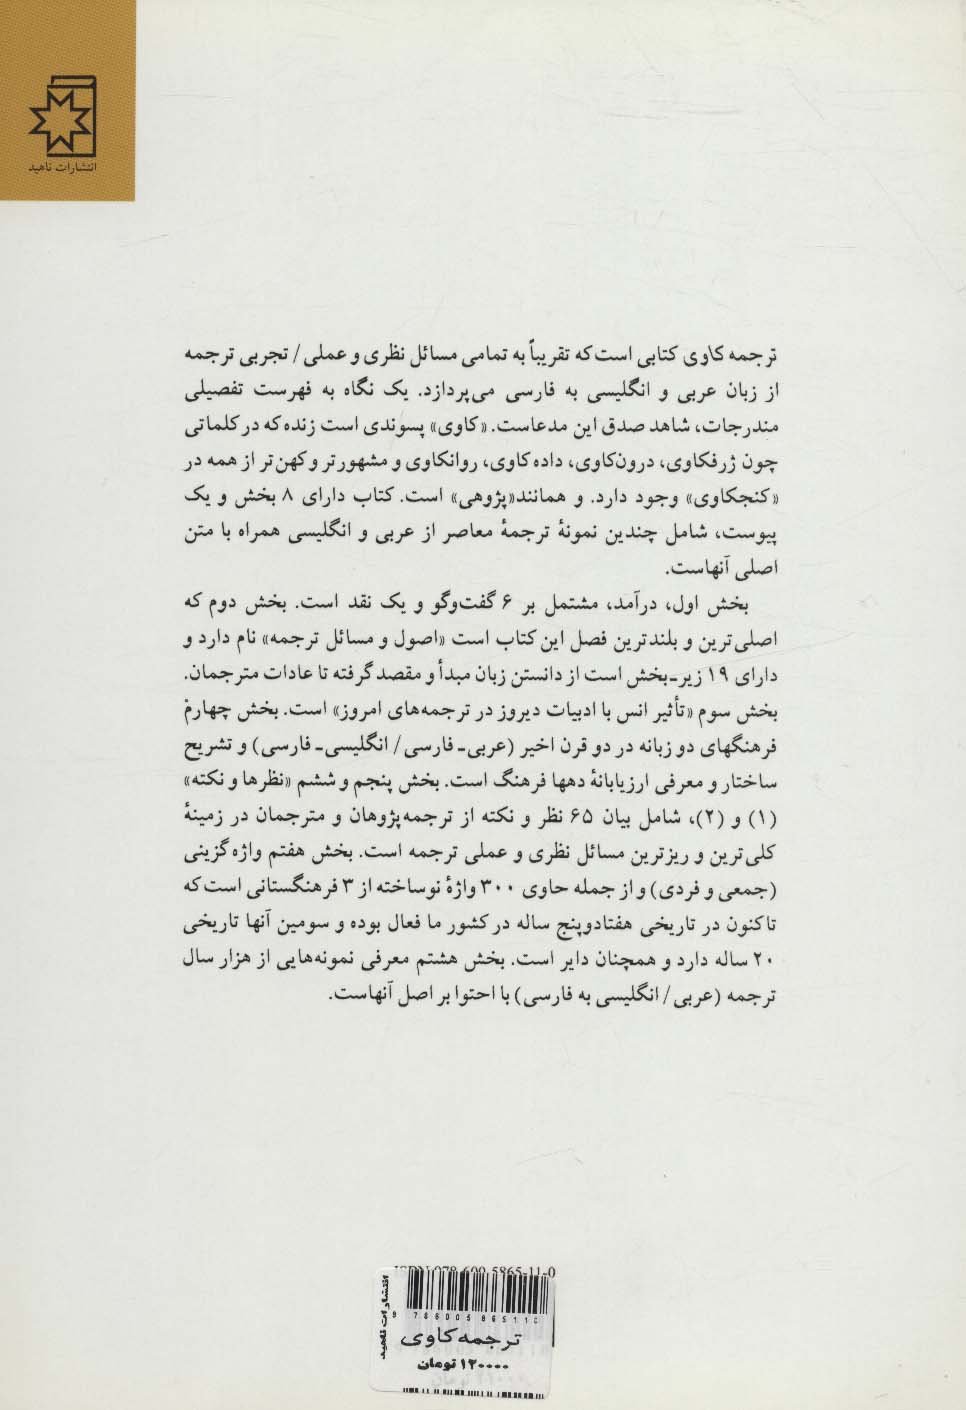 انتشارات ناهید
ترجمه کاوی کتابی است که تقریباً به تمامی مسائل نظری و عملی / تجربی ترجمه
از زبان عربی و انگلیسی به فارسی می‌پردازد. یک نگاه به فهرست تفصیلی
مندرجات، شاهد صدق این مدعاست. «کاوی» پسوندی است زنده که در کلماتی
چون ژرفکاوی، درون‌کاوی، داده کاوی، روانکاوی و مشهورتر و کهن‌تر از همه در
«کنجکاوی» وجود دارد. و همانند «پژوهی» است. کتاب دارای ۸ بخش و یک
پیوست، شامل چندین نمونهٔ ترجمهٔ معاصر از عربی و انگلیسی همراه با متن
اصلی آنهاست.
بخش اول، درآمد، مشتمل بر ۶ گفت‌وگو و یک نقد است. بخش دوم که
اصلی‌ترین و بلندترین فصل این کتاب است «اصول و مسائل ترجمه» نام دارد و
دارای ۱۹ زیر-بخش است از دانستن زبان مبدأ و مقصد گرفته تا عادات مترجمان.
بخش سوم «تأثیر انس با ادبیات دیروز در ترجمه‌های امروز» است. بخش چهارمْ
فرهنگهای دو زبانه در دو قرن اخیر (عربی- فارسی / انگلیسی- فارسی) و تشریح
ساختار و معرفی ارزیابانهٔ دهها فرهنگ است. بخش پنجم و ششم «نظرها و نکته»
(۱) و (۲)، شامل بیان ۶۵ نظر و نکته از ترجمه‌پژوهان و مترجمان در زمینهٔ
کلی‌ترین و ریزترین مسائل نظری و عملی ترجمه است. بخش هفتم واژه گزینی
(جمعی و فردی) و از جمله حاوی ۳۰۰ واژهٔ نوساخته از ۳ فرهنگستانی است که
تاکنون در تاریخی هفتادوپنج ساله در کشور ما فعال بوده و سومین آنها تاریخی
۲۰ ساله دارد و همچنان دایر است. بخش هشتم معرفی نمونه‌هایی از هزار سال
ترجمه (عربی / انگلیسی به فارسی) با احتوا بر اصل آنهاست.
ISBN 978-600-5865-11-0
انتشارات ناهید
9 786005 865110
ترجمه کاوی
۱۲۰۰۰۰ تومان